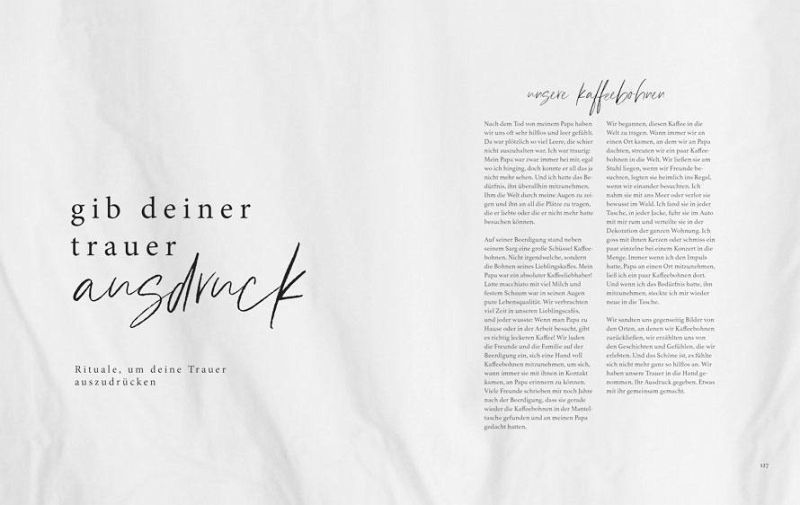 gib deiner
trauer
ausdruck
Rituale, um deine Trauer
auszudrücken
unsere kaffeebohnen
Nach dem Tod von meinem Papa haben
wir uns oft sehr hilflos und leer gefühlt.
Da war plötzlich so viel Leere, die schier
nicht auszuhalten war. Ich war traurig:
Mein Papa war zwar immer bei mir, egal
wo ich hinging, doch konnte er all das ja
nicht mehr sehen. Und ich hatte das Be-
dürfnis, ihn überallhin mitzunehmen.
Ihm die Welt durch meine Augen zu zei-
gen und ihn an all die Plätze zu tragen,
die er liebte oder die er nicht mehr hatte
besuchen können.
Auf seiner Beerdigung stand neben
seinem Sarg eine große Schüssel Kaffee-
bohnen. Nicht irgendwelche, sondern
die Bohnen seines Lieblingskaffees. Mein
Papa war ein absoluter Kaffeeliebhaber!
Latte macchiato mit viel Milch und
festem Schaum war in seinen Augen
pure Lebensqualität. Wir verbrachten
viel Zeit in unseren Lieblingscafés,
und jeder wusste: Wenn man Papa zu
Hause oder in der Arbeit besucht, gibt
es richtig leckeren Kaffee! Wir luden
die Freunde und die Familie auf der
Beerdigung ein, sich eine Hand voll
Kaffeebohnen mitzunehmen, um sich,
wann immer sie mit ihnen in Kontakt
kamen, an Papa erinnern zu können.
Viele Freunde schrieben mir noch Jahre
nach der Beerdigung, dass sie gerade
wieder die Kaffeebohnen in der Mantel-
tasche gefunden und an meinen Papa
gedacht hatten.
Wir begannen, diesen Kaffee in die
Welt zu tragen. Wann immer wir an
einen Ort kamen, an dem wir an Papa
dachten, streuten wir ein paar Kaffee-
bohnen in die Welt. Wir ließen sie am
Stuhl liegen, wenn wir Freunde be-
suchten, legten sie heimlich ins Regal,
wenn wir einander besuchten. Ich
nahm sie mit ans Meer oder verlor sie
bewusst im Wald. Ich fand sie in jeder
Tasche, in jeder Jacke, fuhr sie im Auto
mit mir rum und verteilte sie in der
Dekoration der ganzen Wohnung. Ich
goss mit ihnen Kerzen oder schmiss ein
paar einzelne bei einem Konzert in die
Menge. Immer wenn ich den Impuls
hatte, Papa an einen Ort mitzunehmen,
ließ ich ein paar Kaffeebohnen dort.
Und wenn ich das Bedürfnis hatte, ihn
mitzunehmen, steckte ich mir wieder
neue in die Tasche.
Wir sandten uns gegenseitig Bilder von
den Orten, an denen wir Kaffeebohnen
zurückließen, wir erzählten uns von
den Geschichten und Gefühlen, die wir
erlebten. Und das Schöne ist, es fühlte
sich nicht mehr ganz so hilflos an. Wir
haben unsere Trauer in die Hand ge-
nommen. Ihr Ausdruck gegeben. Etwas
mit ihr gemeinsam gemacht.
127